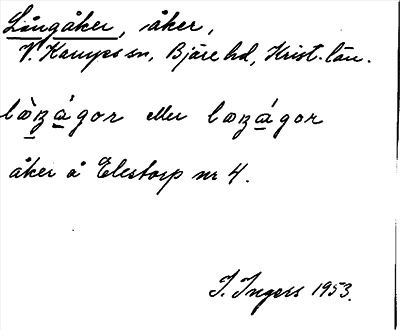 Långåker, åker,
V. Karups sn, Bjäre hd, Krist. län.
læ̀ŋágor eller læŋágor
åker å Elestorp nr 4.
I. Ingers 1953.